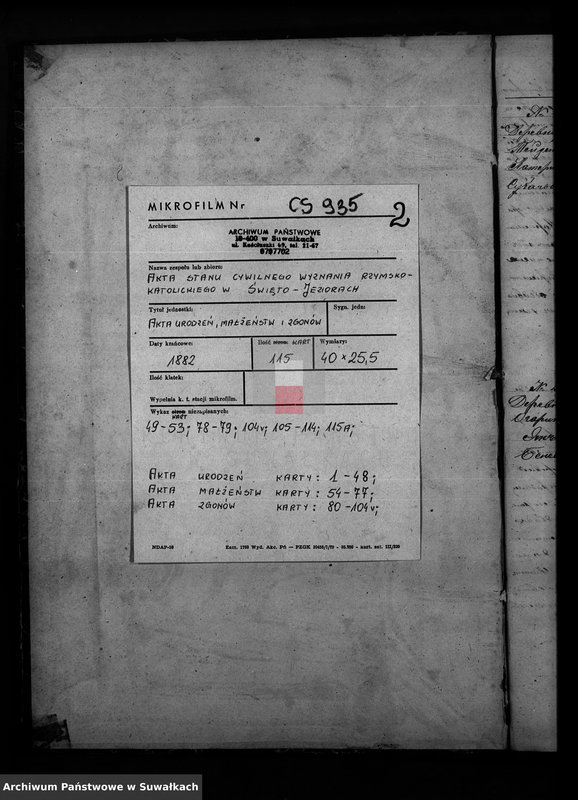 MIKROFILM Nr CS 935 2
Archiwum:
ARCHIWUM PAŃSTWOWE
16-400 w Suwałkach
ul. Kościuszki 69, tel. 21-67
6797762
Nazwa zespołu lub zbioru:
AKTA STANU CYWILNEGO WYZNANIA RZYMSKO-
KATOLICKIEGO W ŚWIĘTO-JEZIORACH
Tytuł jednostki: Sygn. jedn:
AKTA URODZEŃ, MAŁŻEŃSTW I ZGONÓW
Daty krańcowe: Ilość stron: KART Wymiary:
1882 115 40 × 25,5
Ilość klatek:
Wypełnia k. t. stacji mikrofilm.
Wykaz stron niezapisanych:
KART
49-53; 78-79; 104v; 105-114; 115A;
AKTA URODZEŃ KARTY: 1-48;
AKTA MAŁŻEŃSTW KARTY: 54-77;
AKTA ZGONÓW KARTY: 80-104v;
NDAP-10 Zam. 1790 Wyd. Akc. Pń — PZGK
Archiwum Państwowe w Suwałkach